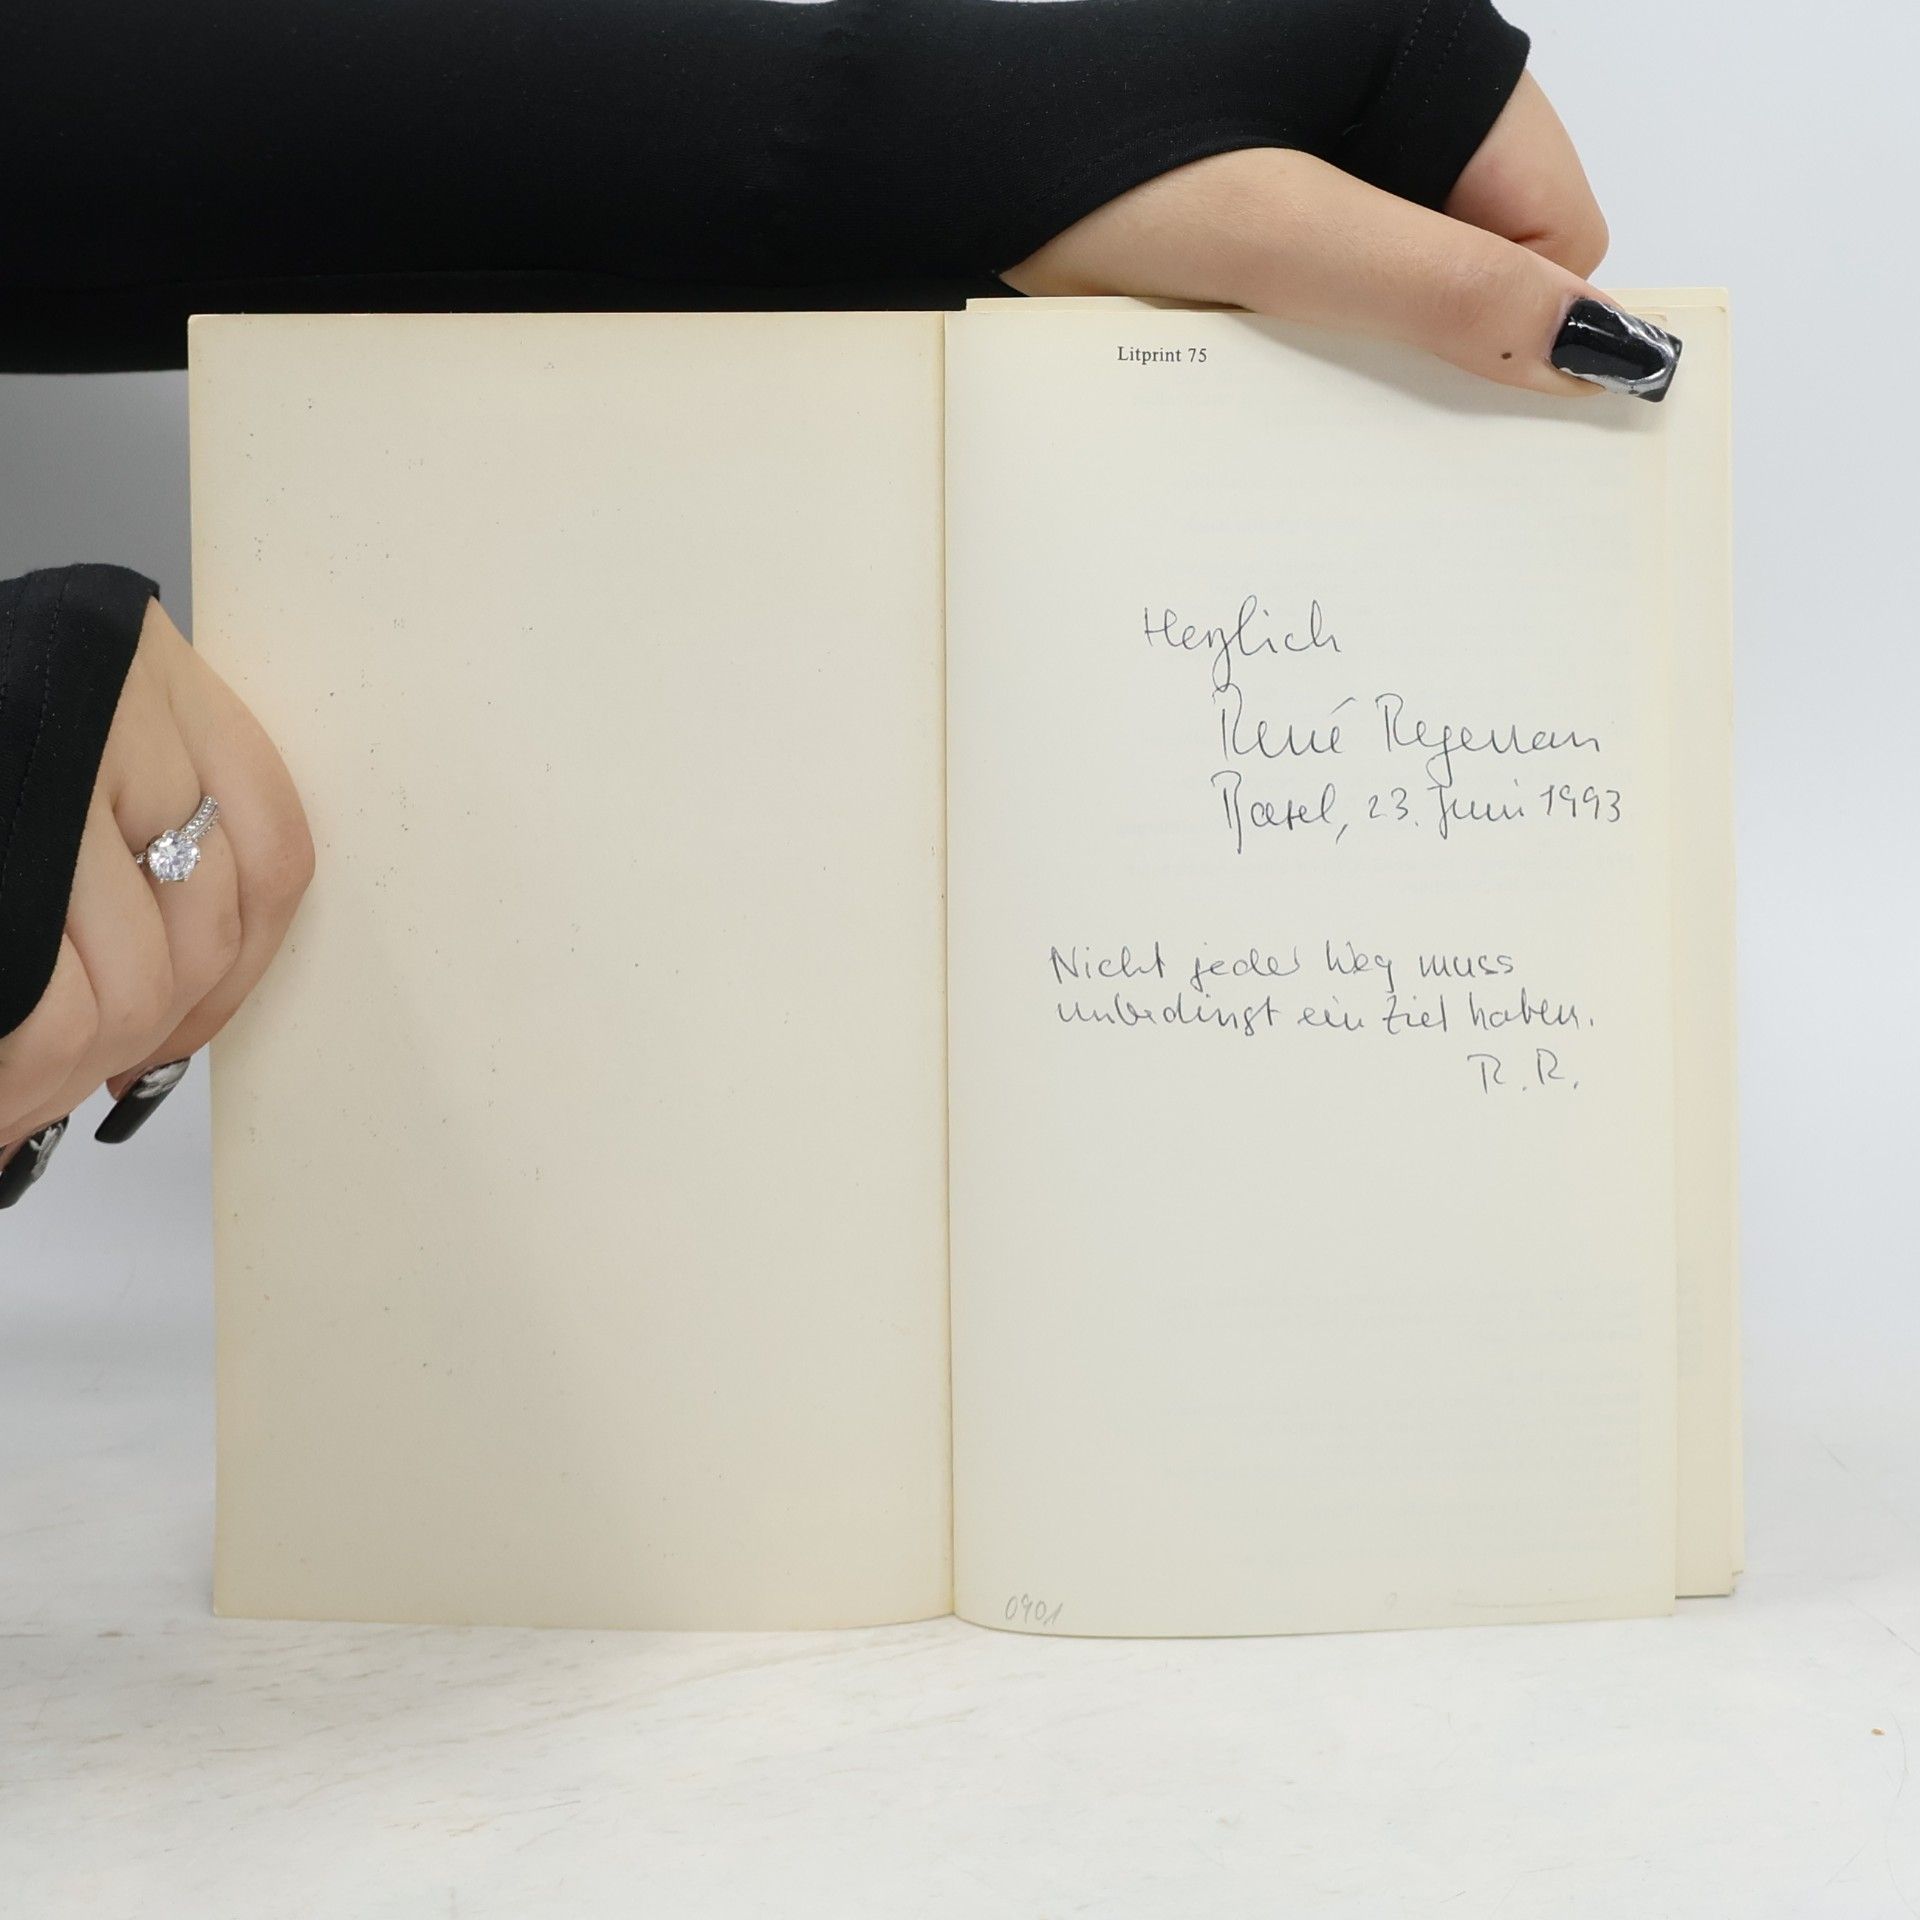 Litprint 75
Herzlich
René Regenass
Basel, 23. Juni 1993
Nicht jeder Weg muss
unbedingt ein Ziel haben.
R. R.
0901